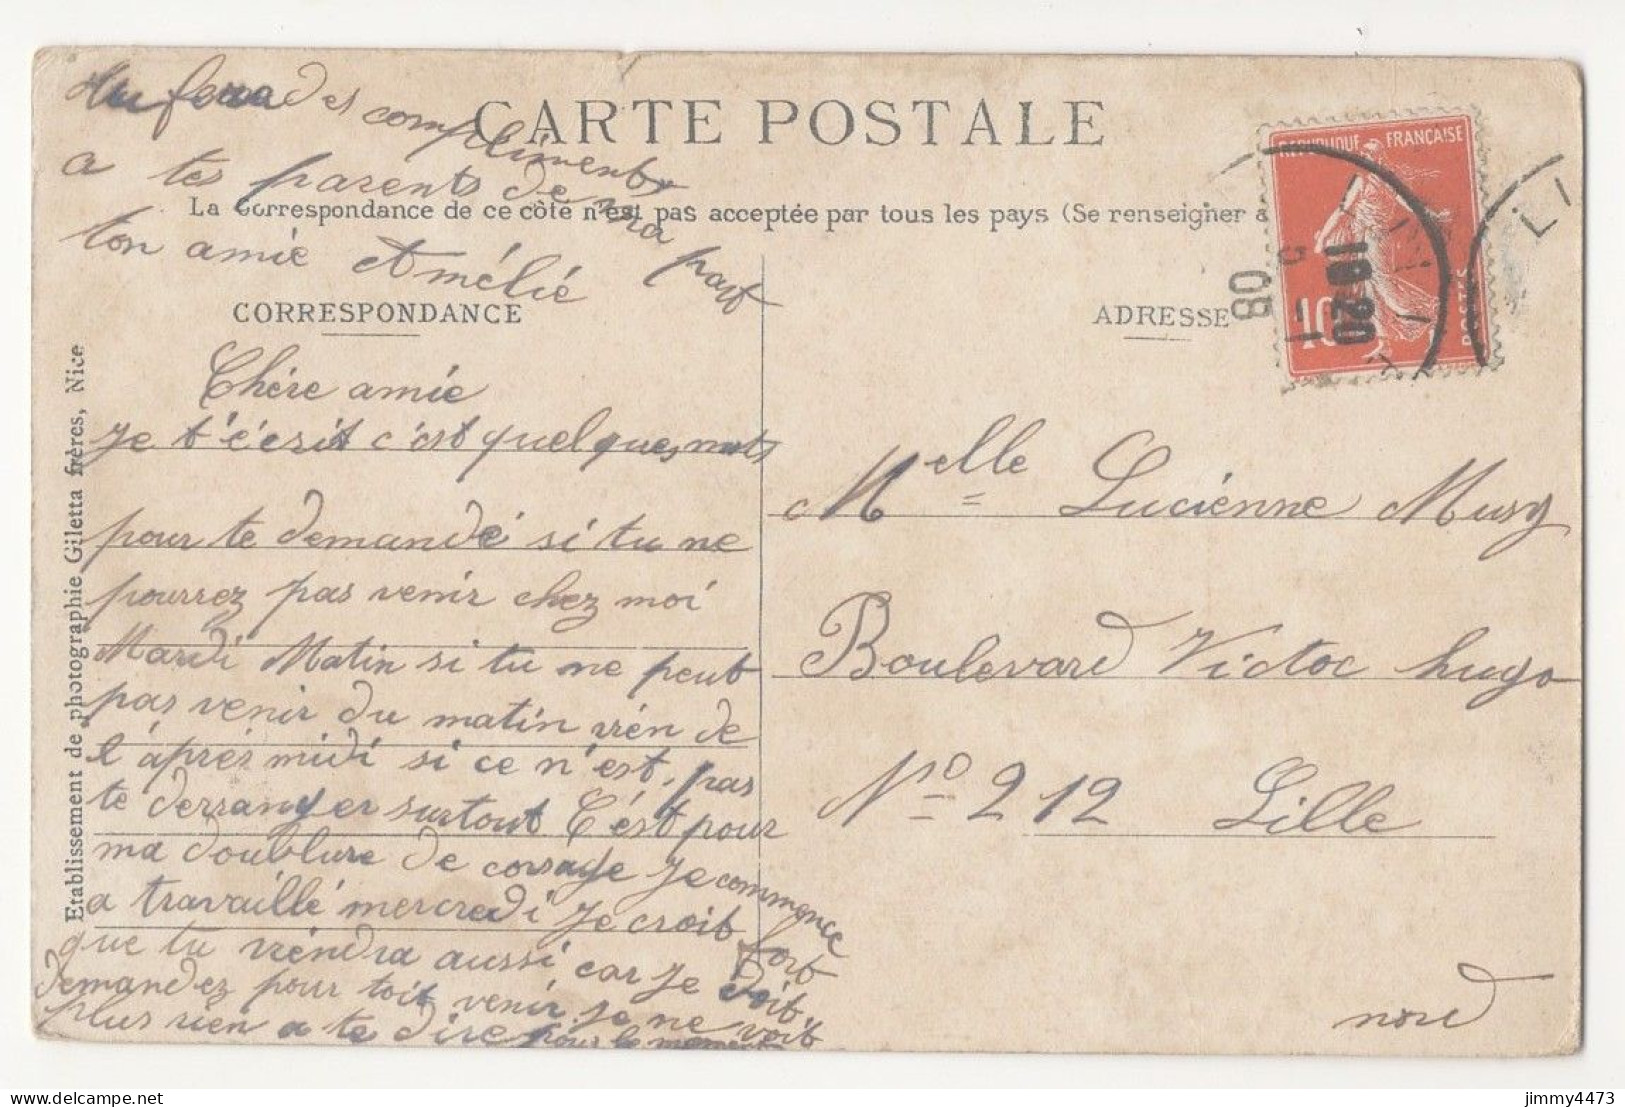 CARTE POSTALE
La Correspondance de ce côté n'est pas acceptée par tous les pays (Se renseigner a
CORRESPONDANCE
ADRESSE
REPUBLIQUE FRANÇAISE
POSTES
10
18 20
5 -1
08
LI
Etablissement de photographie Giletta frères, Nice
Chére amie
Je t'écrit c'est quelques mots
pour te demandé si tu ne
pourrez pas venir chez moi
Mardi Matin si tu ne peut
pas venir du matin vién de
l'áprés midi si ce n'est pas
te derranger surtout C'ést pour
ma doublure de corsage Je commence
a travaillé mercredi Je croit fort
que tu viéndra aussi car je doit
demandez pour toit venir je ne voit
plus rien a te dire pour le moment
Tu fera des compliments
a tes parents de ma part
ton amie Amélie
Melle Luciénne Musy
Boulevard Victor hugo
No 212 Lille
nord
jimmy4473
delcampe.net